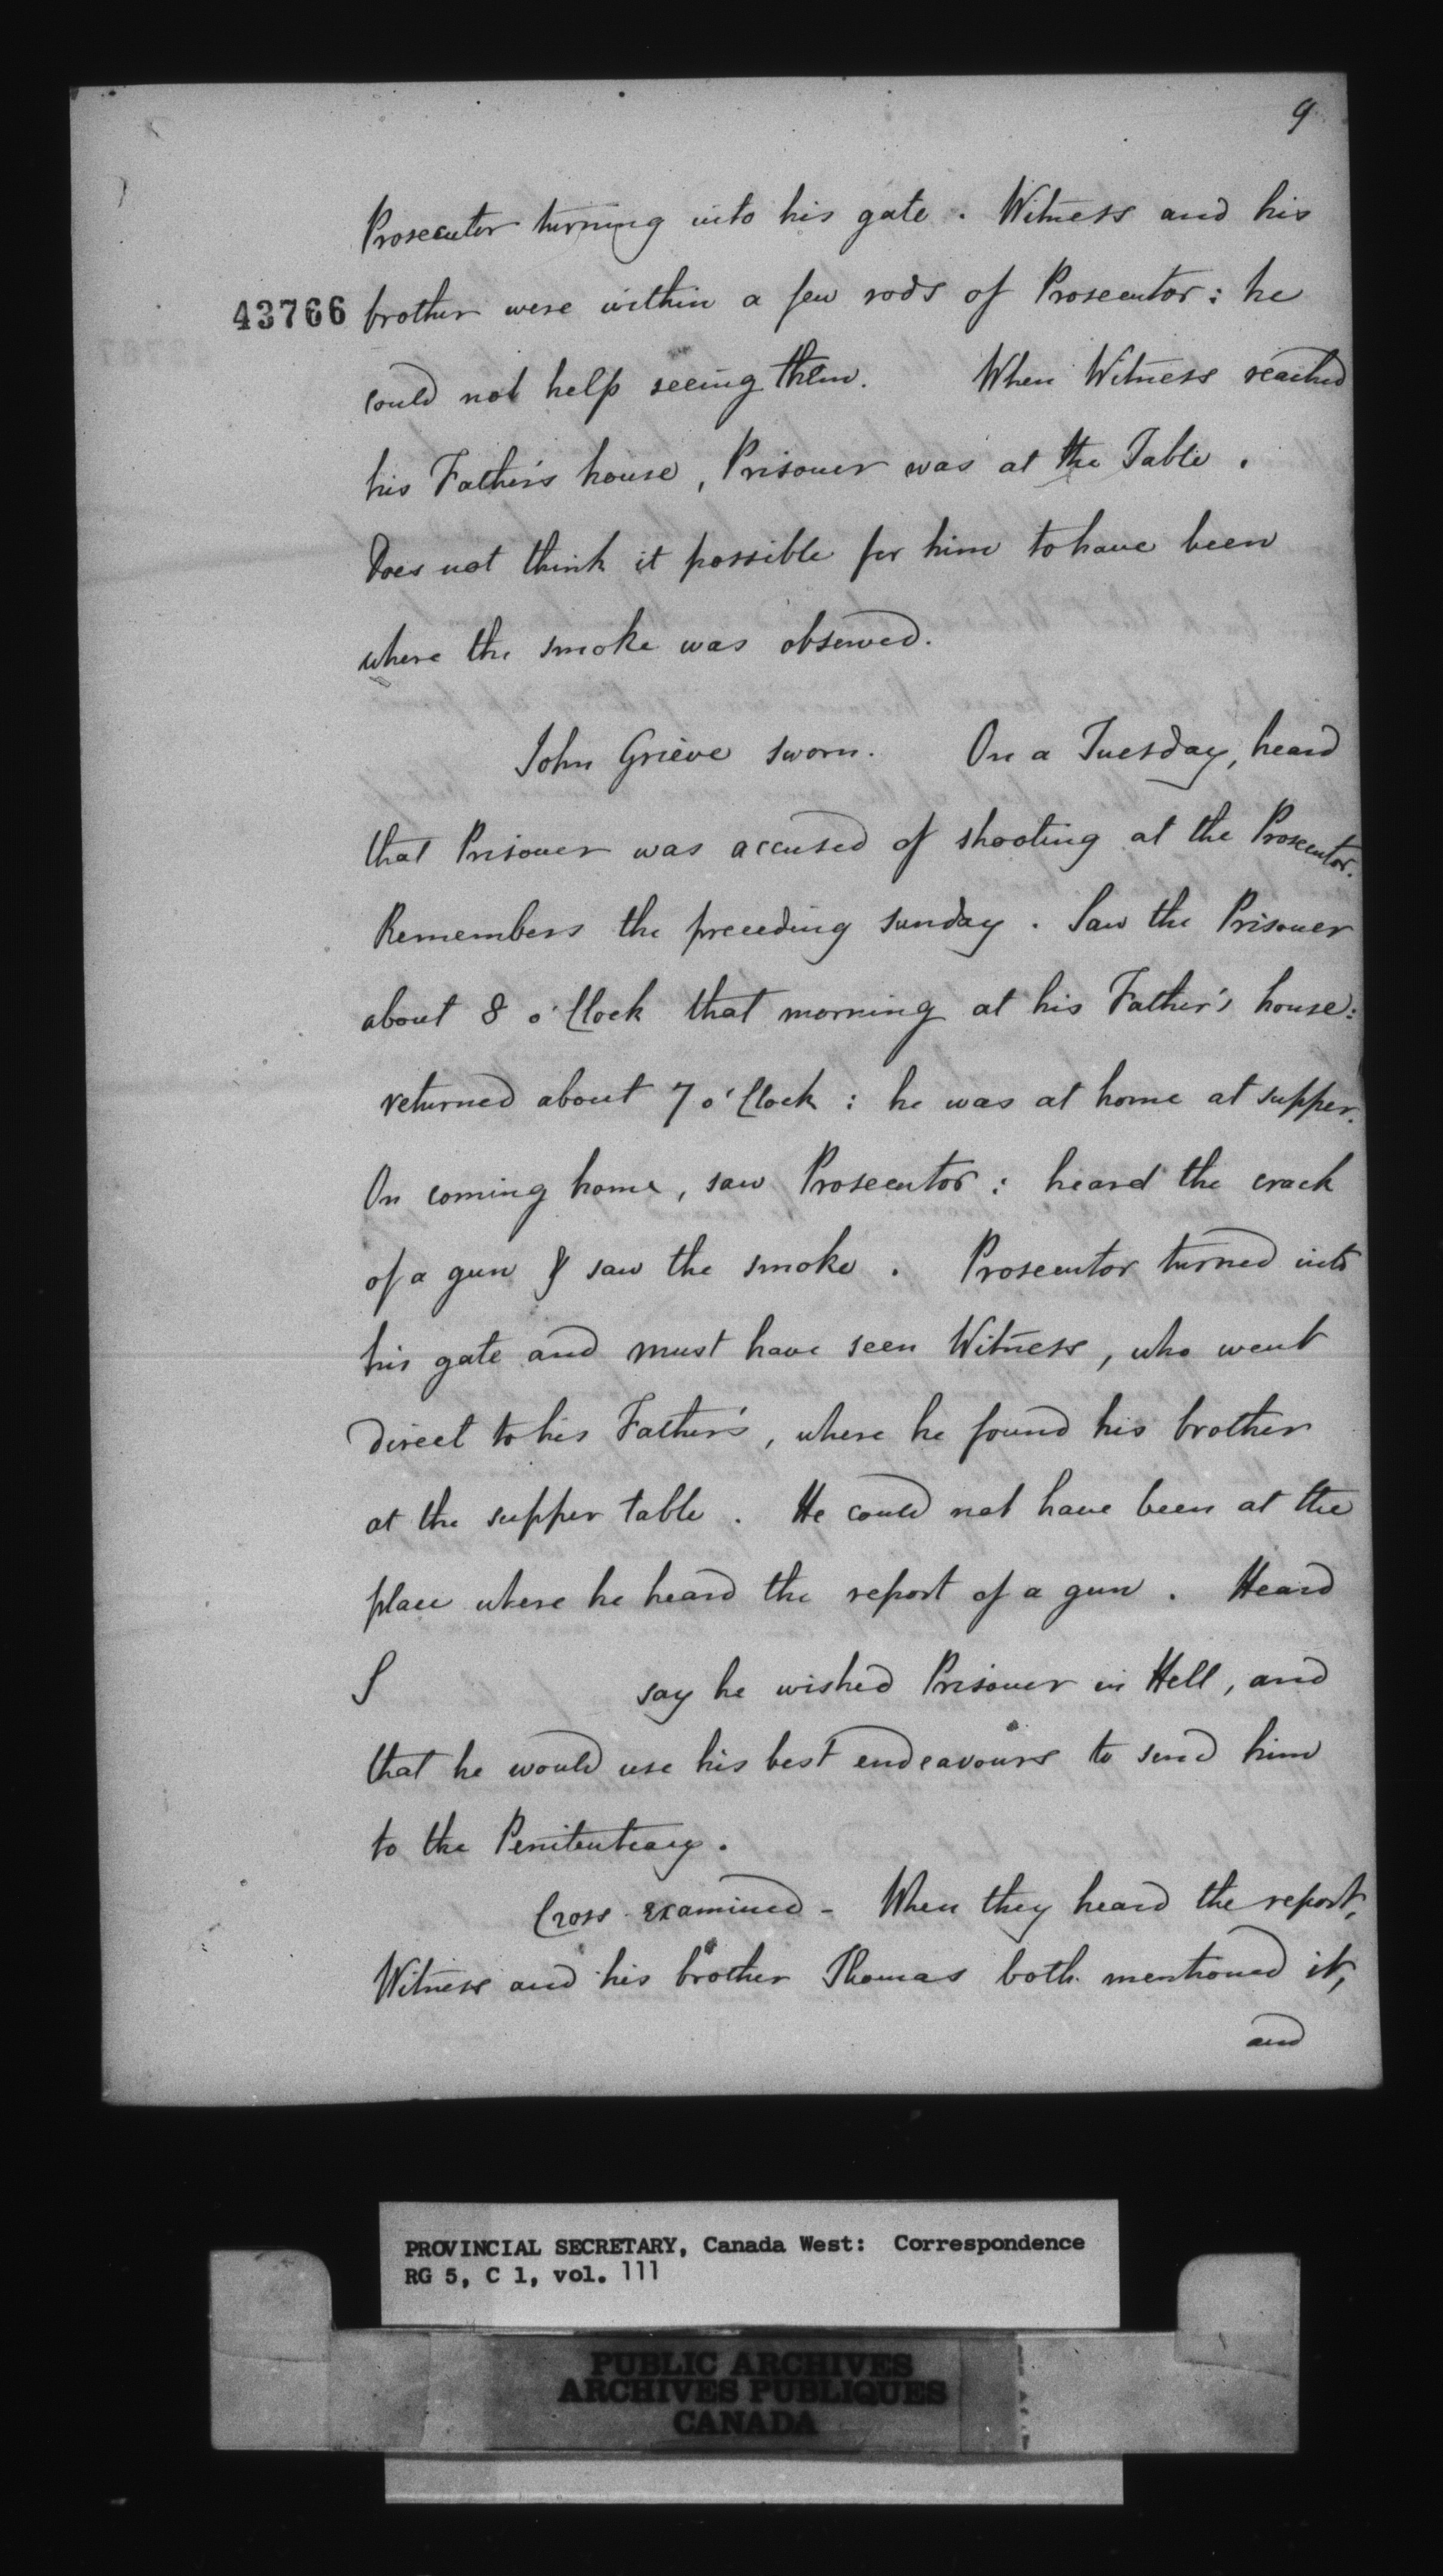 9
Prosecutor turning into his gate. Witness and his
43766
brother were within a few rods of Prosecutor: he
could not help seeing them. When Witness reached
his Father's house, Prisoner was at the Table.
Does not think it possible for him to have been
where the smoke was observed.
John Grieve sworn. On a Tuesday, heard
that Prisoner was accused of shooting at the Prosecutor.
Remembers the preceding Sunday. Saw the Prisoner
about 8 o'Clock that morning at his Father's house:
returned about 7 o'Clock: he was at home at supper.
On coming home, saw Prosecutor: heard the crack
of a gun & saw the smoke. Prosecutor turned into
his gate and must have seen Witness, who went
direct to his Father's, where he found his brother
at the supper table. He could not have been at the
place where he heard the report of a gun. Heard
S say he wished Prisoner in Hell, and
that he would use his best endeavours to send him
to the Penitentiary.
Cross examined - When they heard the report,
Witness and his brother Thomas both mentioned it,
and
PROVINCIAL SECRETARY, Canada West: Correspondence
RG 5, C 1, vol. 111
PUBLIC ARCHIVES
ARCHIVES PUBLIQUES
CANADA